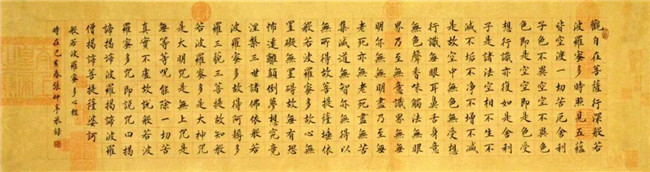 觀自在菩薩行深般若
波羅蜜多時照見五蘊
皆空渡一切苦厄舍利
子色不異空空不異色
色即是空空即是色受
想行識亦復如是舍利
子是諸法空相不生不
滅不垢不淨不增不減
是故空中無色無受想
行識無眼耳鼻舌身意
無色聲香味觸法無眼
界乃至無意識界無無
明亦無無明盡乃至無
老死亦無老死盡無苦
集滅道無智亦無得以
無所得故菩提薩埵依
般若波羅蜜多故心無
罣礙無罣礙故無有恐
怖遠離顛倒夢想究竟
涅槃三世諸佛依般若
波羅蜜多故得阿耨多
羅三藐三菩提故知般
若波羅蜜多是大神咒
是大明咒是無上咒是
無等等咒能除一切苦
真實不虛故說般若波
羅蜜多咒即說咒曰揭
諦揭諦波羅揭諦波羅
僧揭諦菩提薩婆訶
般若波羅蜜多心經
時在己亥春張